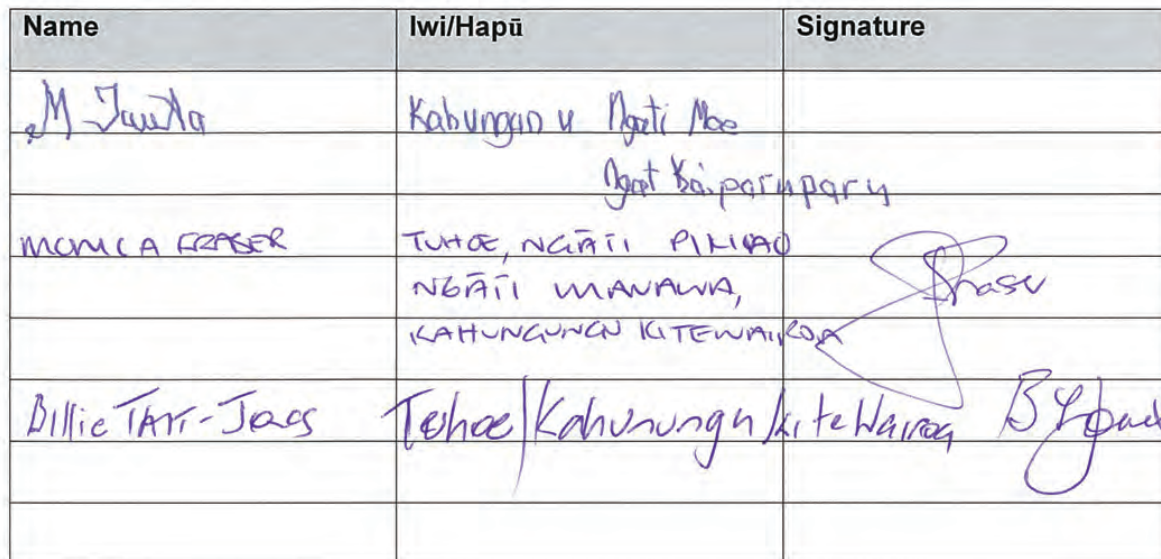 Name Iwi/Hapū Signature
M Kahungun u Ngati Moe
Ngat Kaiparupary
MONICA FRASER TUHOE, NGĀTI PIKIAO
NGĀTI MANAWA,
KAHUNGUNGU KITEWAIROA
Billie Tuhoe/Kahunungu ki te Wairoa B